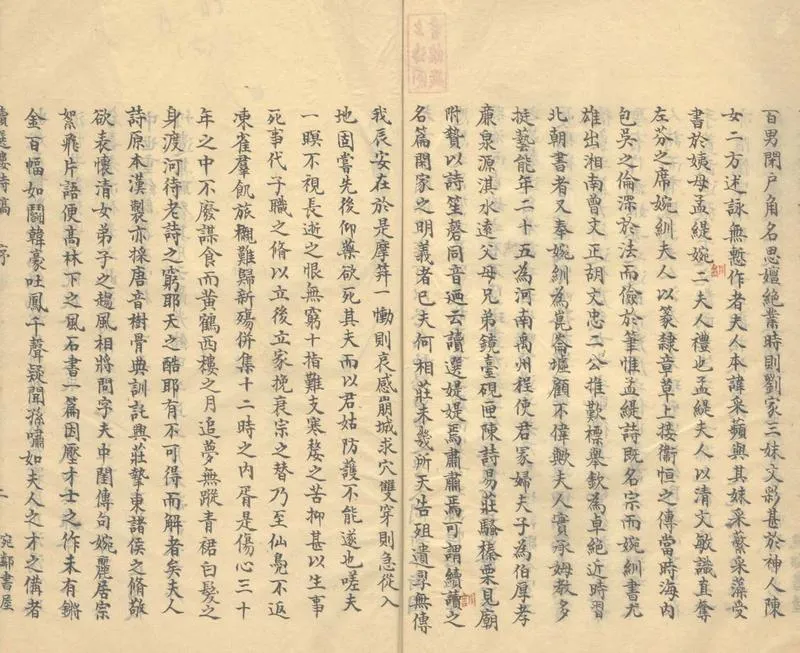 百男閉户角名思嬗絕業時則劉家三妹文彩甚於神人陳
女二方述詠無慙作者夫人本諱采蘋與其妹采蘩采藻受
書於姨母孟緹婉二夫人禮也孟緹夫人以清文敏識直奪
訓
左芬之席婉紃夫人以篆隸章草上接衞恒之傳當時海内
包吳之倫滯於法而儉於筆惟孟緹詩既名宗而婉紃書尤
雄出湘南曾文正胡文忠二公推歎標舉欽為卓絕近時習
北朝書者又奉婉紃為崑崙墟顧不偉歟夫人實承姆教多
挺藝能年二十五為河南禹州程使君冢婦夫子為伯厚孝
廉泉源淇水遠父母兄弟鏡臺硯匣陳詩易莊騷榛栗見廟
附贄以詩笙磬同音迺云讀選媞媞焉肅肅焉可謂續讀之
訓
名篇閑家之明義者已夫何相莊未幾所天告殂遺孕無傳
我辰安在於是摩笄一慟則哀感崩城求穴雙穿則急從入
地固嘗先後仰藥欲死其夫而以君姑防護不能遂也嗟夫
一瞑不視長逝之恨無窮十指難支寒嫠之苦抑甚以生事
死事代子職之脩以立後立家挽衰宗之替乃至仙鳧不返
凍雀羣飢旅櫬難歸新殤併集十二時之内胥是傷心三十
年之中不廢謀食而黃鶴西樓之月追夢無蹤青裙白髮之
身渡河待老詩之窮耶天之酷耶有不可得而解者矣夫人
詩原本漢製亦採唐音樹骨典訓託興莊摯東諸侯之脩敬
欲表懷清女弟子之趨風相將問字夫中閨傳句婉麗居宗
絮飛片語便高林下之風石書一篇因壓才士之作未有鏘
金百幅如鬭韓豪吐鳳千聲疑聞孫嘯如夫人之才之備者
讀選樓詩稿 序 二 宛鄰書屋